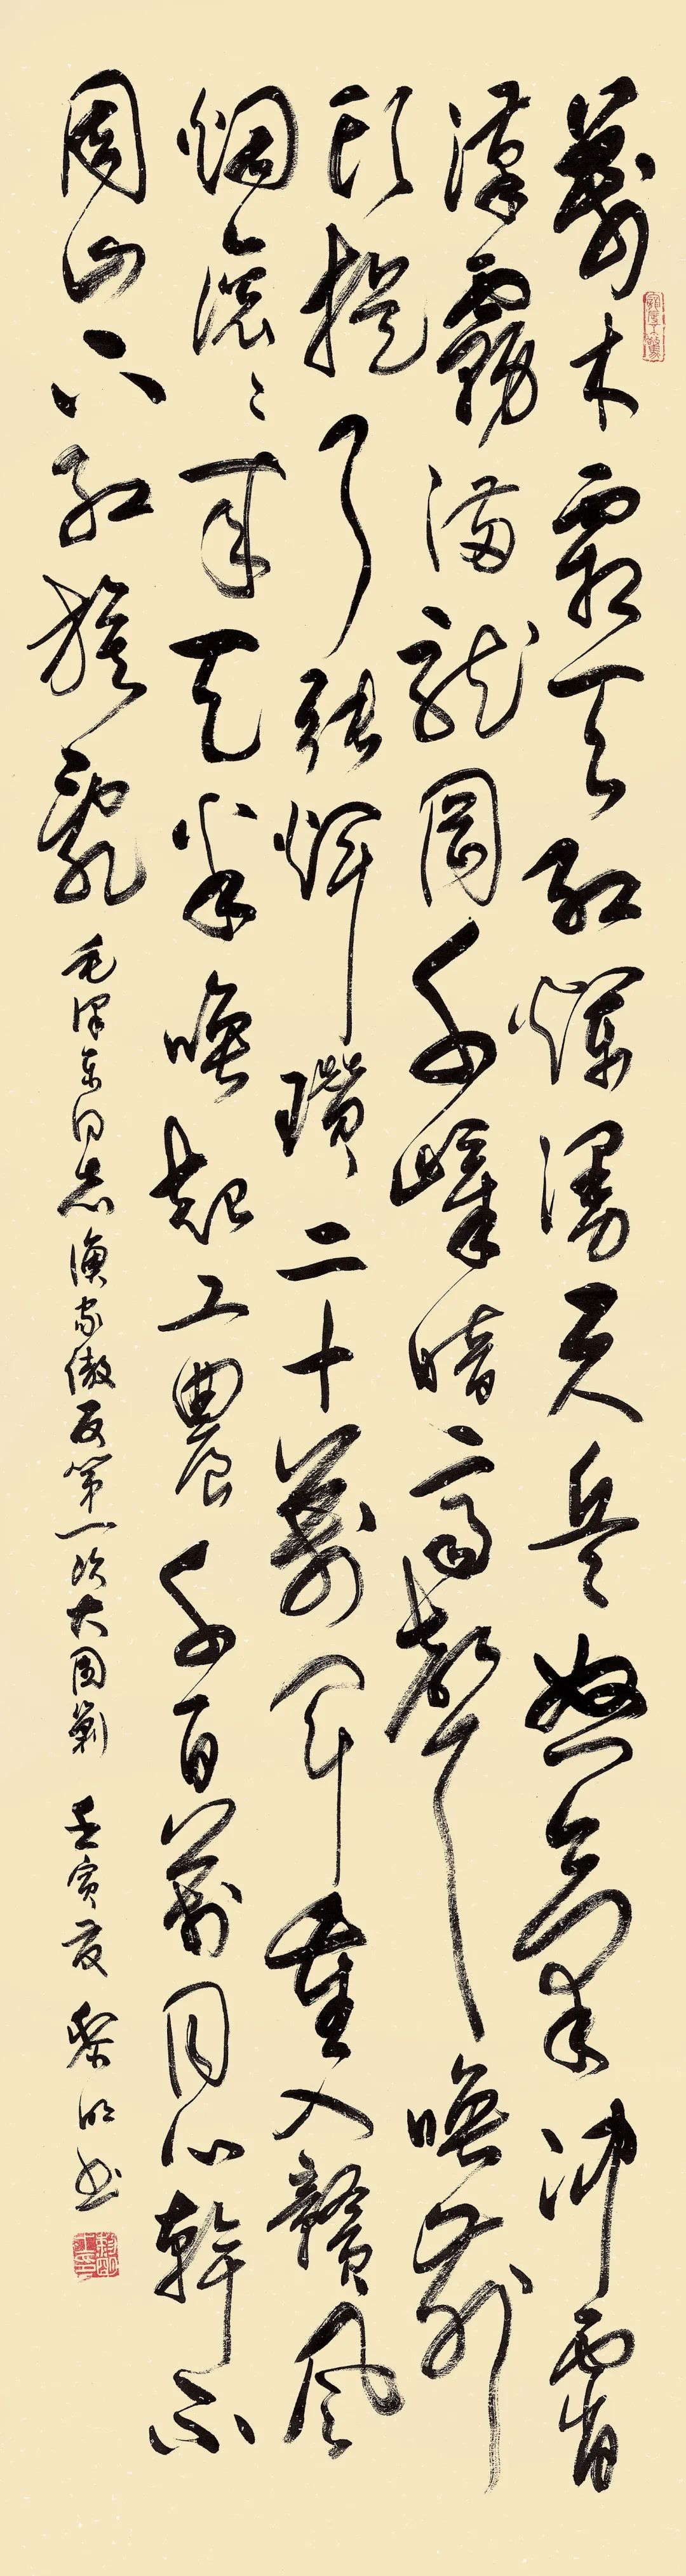 萬木霜天紅爛漫天兵怒氣沖霄
漢霧滿龍岡千嶂暗齊聲喚前
頭捉了張煇瓚二十萬軍重入贛風
烟滾〻來天半喚起工農千百萬同心幹不
周山下紅旗亂 毛澤東同志漁家傲反第一次大圍剿 壬寅夏 黎明书